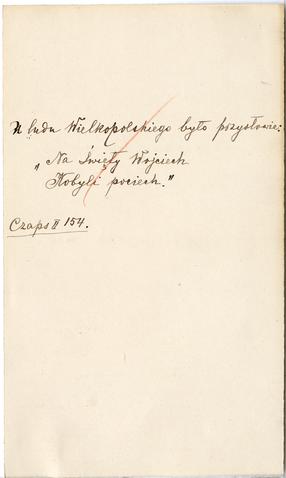 U ludu Wielkopolskiego było przysłowie:
„Na Święty Wojciech
Kobyli pociech."
Czaps II 154.